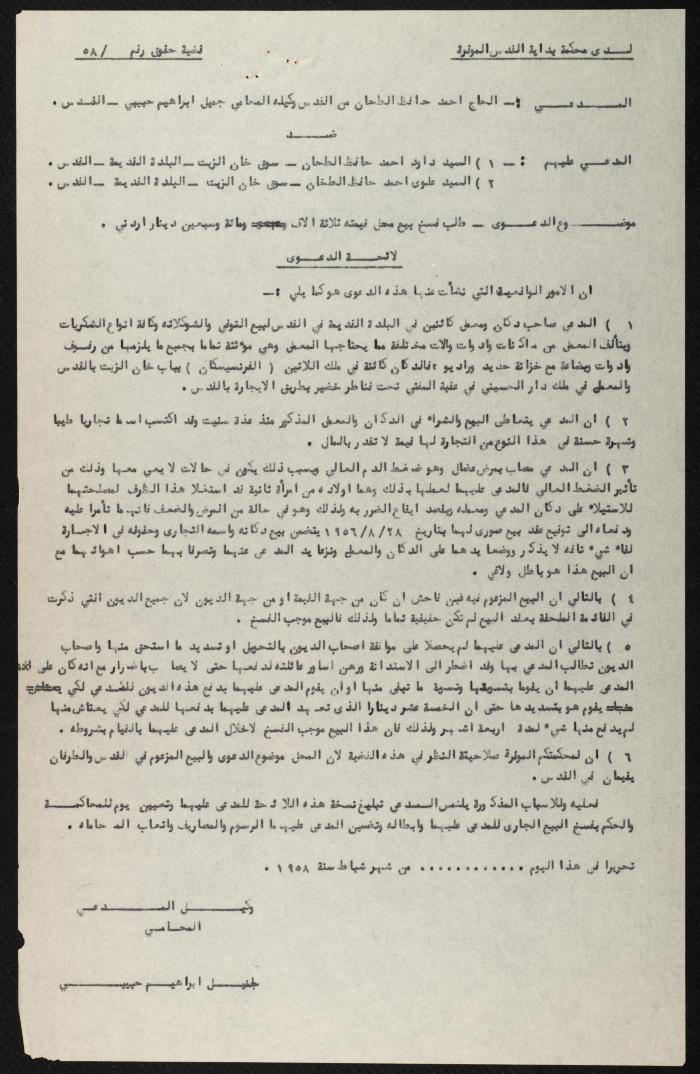 لدى محكمة بداية القدس الموقرة
قضية حقوق رقم /٥٨
المدعي :- الحاج احمد حافظ الطحان من القدس وكيله المحامي جميل ابراهيم حبيبي - القدس .
ضد
المدعي عليهم :- ١ ) السيد داود احمد حافظ الطحان - سوق خان الزيت - البلدة القديمة - القدس .
٢ ) السيد علوى احمد حافظ الطحان - سوق خان الزيت - البلدة القديمة - القدس .
موضوع الدعوى - طلب فسخ بيع محل قيمته ثلاثة الاف ومائة وسبعين دينار اردني .
لائحة الدعوى
ان الامور الواقعية التي نشأت عنها هذه الدعوى هو كما يلي :-
١ ) المدعي صاحب دكان ومعمل كائنين في البلدة القديمة في القدس لبيع التوفي والشوكلاته وكافة انواع السكريات
ويتألف المعمل من ماكنات وادوات والات مختلفة مما يحتاجها المعمل وهي مؤثثة تماما بجميع ما يلزمها من رفوف
وادوات وبضاعة مع خزانة حديد وراديو فالدكان كائنة في ملك اللاتين ( الفرنسيسكان ) بباب خان الزيت بالقدس
والمعمل في ملك دار الحسيني في عقبة المفتي تحت قناطر خضير بطريق الايجارة بالقدس .
٢ ) ان المدعي يتعاطى البيع والشراء في الدكان والمعمل المذكور منذ عدة سنيت وقد اكتسب اسما تجاريا طيبا
وشهرة حسنة في هذا النوع من التجارة لها قيمة لا تقدر بالمال .
٣ ) ان المدعي مصاب بمرض عضال وهو ضغط الدم العالي وبسبب ذلك يكون في حالات لا يعي معها وذلك من
تأثير الضغط العالي فالمدعي عليهما لعلمها بذلك وهما اولاده من امرأة ثانية قد استغلا هذا الظرف لمصلحتهما
للاستيلاء على دكان المدعي ومعمله وبقصد ايقاع الضرر به ولذلك وهو في حالة من المرض والضعف فانهما تأمرا عليه
ودفعاه الى توقيع عقد بيع صورى لهما بتاريخ ١٩٥٦/٨/٢٨ يتضمن بيع دكانه واسمه التجارى وحقوقه في الاجارة
لقاء شيء تافه لا يذكر ووضعا يدهما على الدكان والمعمل ونزعا يد المدعي عنهما وتصرفا بهما حسب اهوائهما مع
ان البيع هذا هو باطل ولاغي .
٤ ) بالتالي ان البيع المزعوم فيه غبن فاحش ان كان من جهة القيمة او من جهة الديون لان جميع الديون التي ذكرت
في القائمة الملحقة بعقد البيع لم تكن حقيقية تماما ولذلك فالبيع موجب الفسخ .
٥ ) بالتالي ان المدعي عليهما لم يحصلا على موافقة اصحاب الديون بالتحويل او تسديد ما استحق منها واصحاب
الديون تطالب المدعي بها وقد اضطر الى الاستدانة ورهن اساور عائلته لدفعها حتى لا يصاب باضرار مع انه كان على
المدعى عليهما ان يقوما بتسويتها وتسوية ما تبقى منها او ان يقوم المدعي عليهما بدفع هذه الديون للمدعي لكي
يقوم هو بتسديدها حتى ان الخمسة عشر دينارا الذى تعهد المدعى عليهما بدفعها للمدعي لكي يعتاش منها
لم يدفع منها شيء لمدة اربعة اشهر ولذلك فان هذا البيع موجب الفسخ لاخلال المدعى عليهما بالقيام بشروطه .
٦ ) ان لمحكمتكم الموقرة صلاحية النظر في هذه القضية لان المحل موضوع الدعوى والبيع المزعوم في القدس والطرفان
يقيمان في القدس .
فعليه وللاسباب المذكورة يلتمس المدعي تبليغ نسخة هذه اللائحة للمدعى عليهما وتعيين يوم للمحاكمة
والحكم بفسخ البيع الجارى للمدعى عليهما وابطاله وتضمين المدعى عليهما الرسوم والمصاريف واتعاب المحاماه .
تحريرا في هذا اليوم ............ من شهر شباط سنة ١٩٥٨ .
وكيل المدعي
المحامي
جميل ابراهيم حبيبي